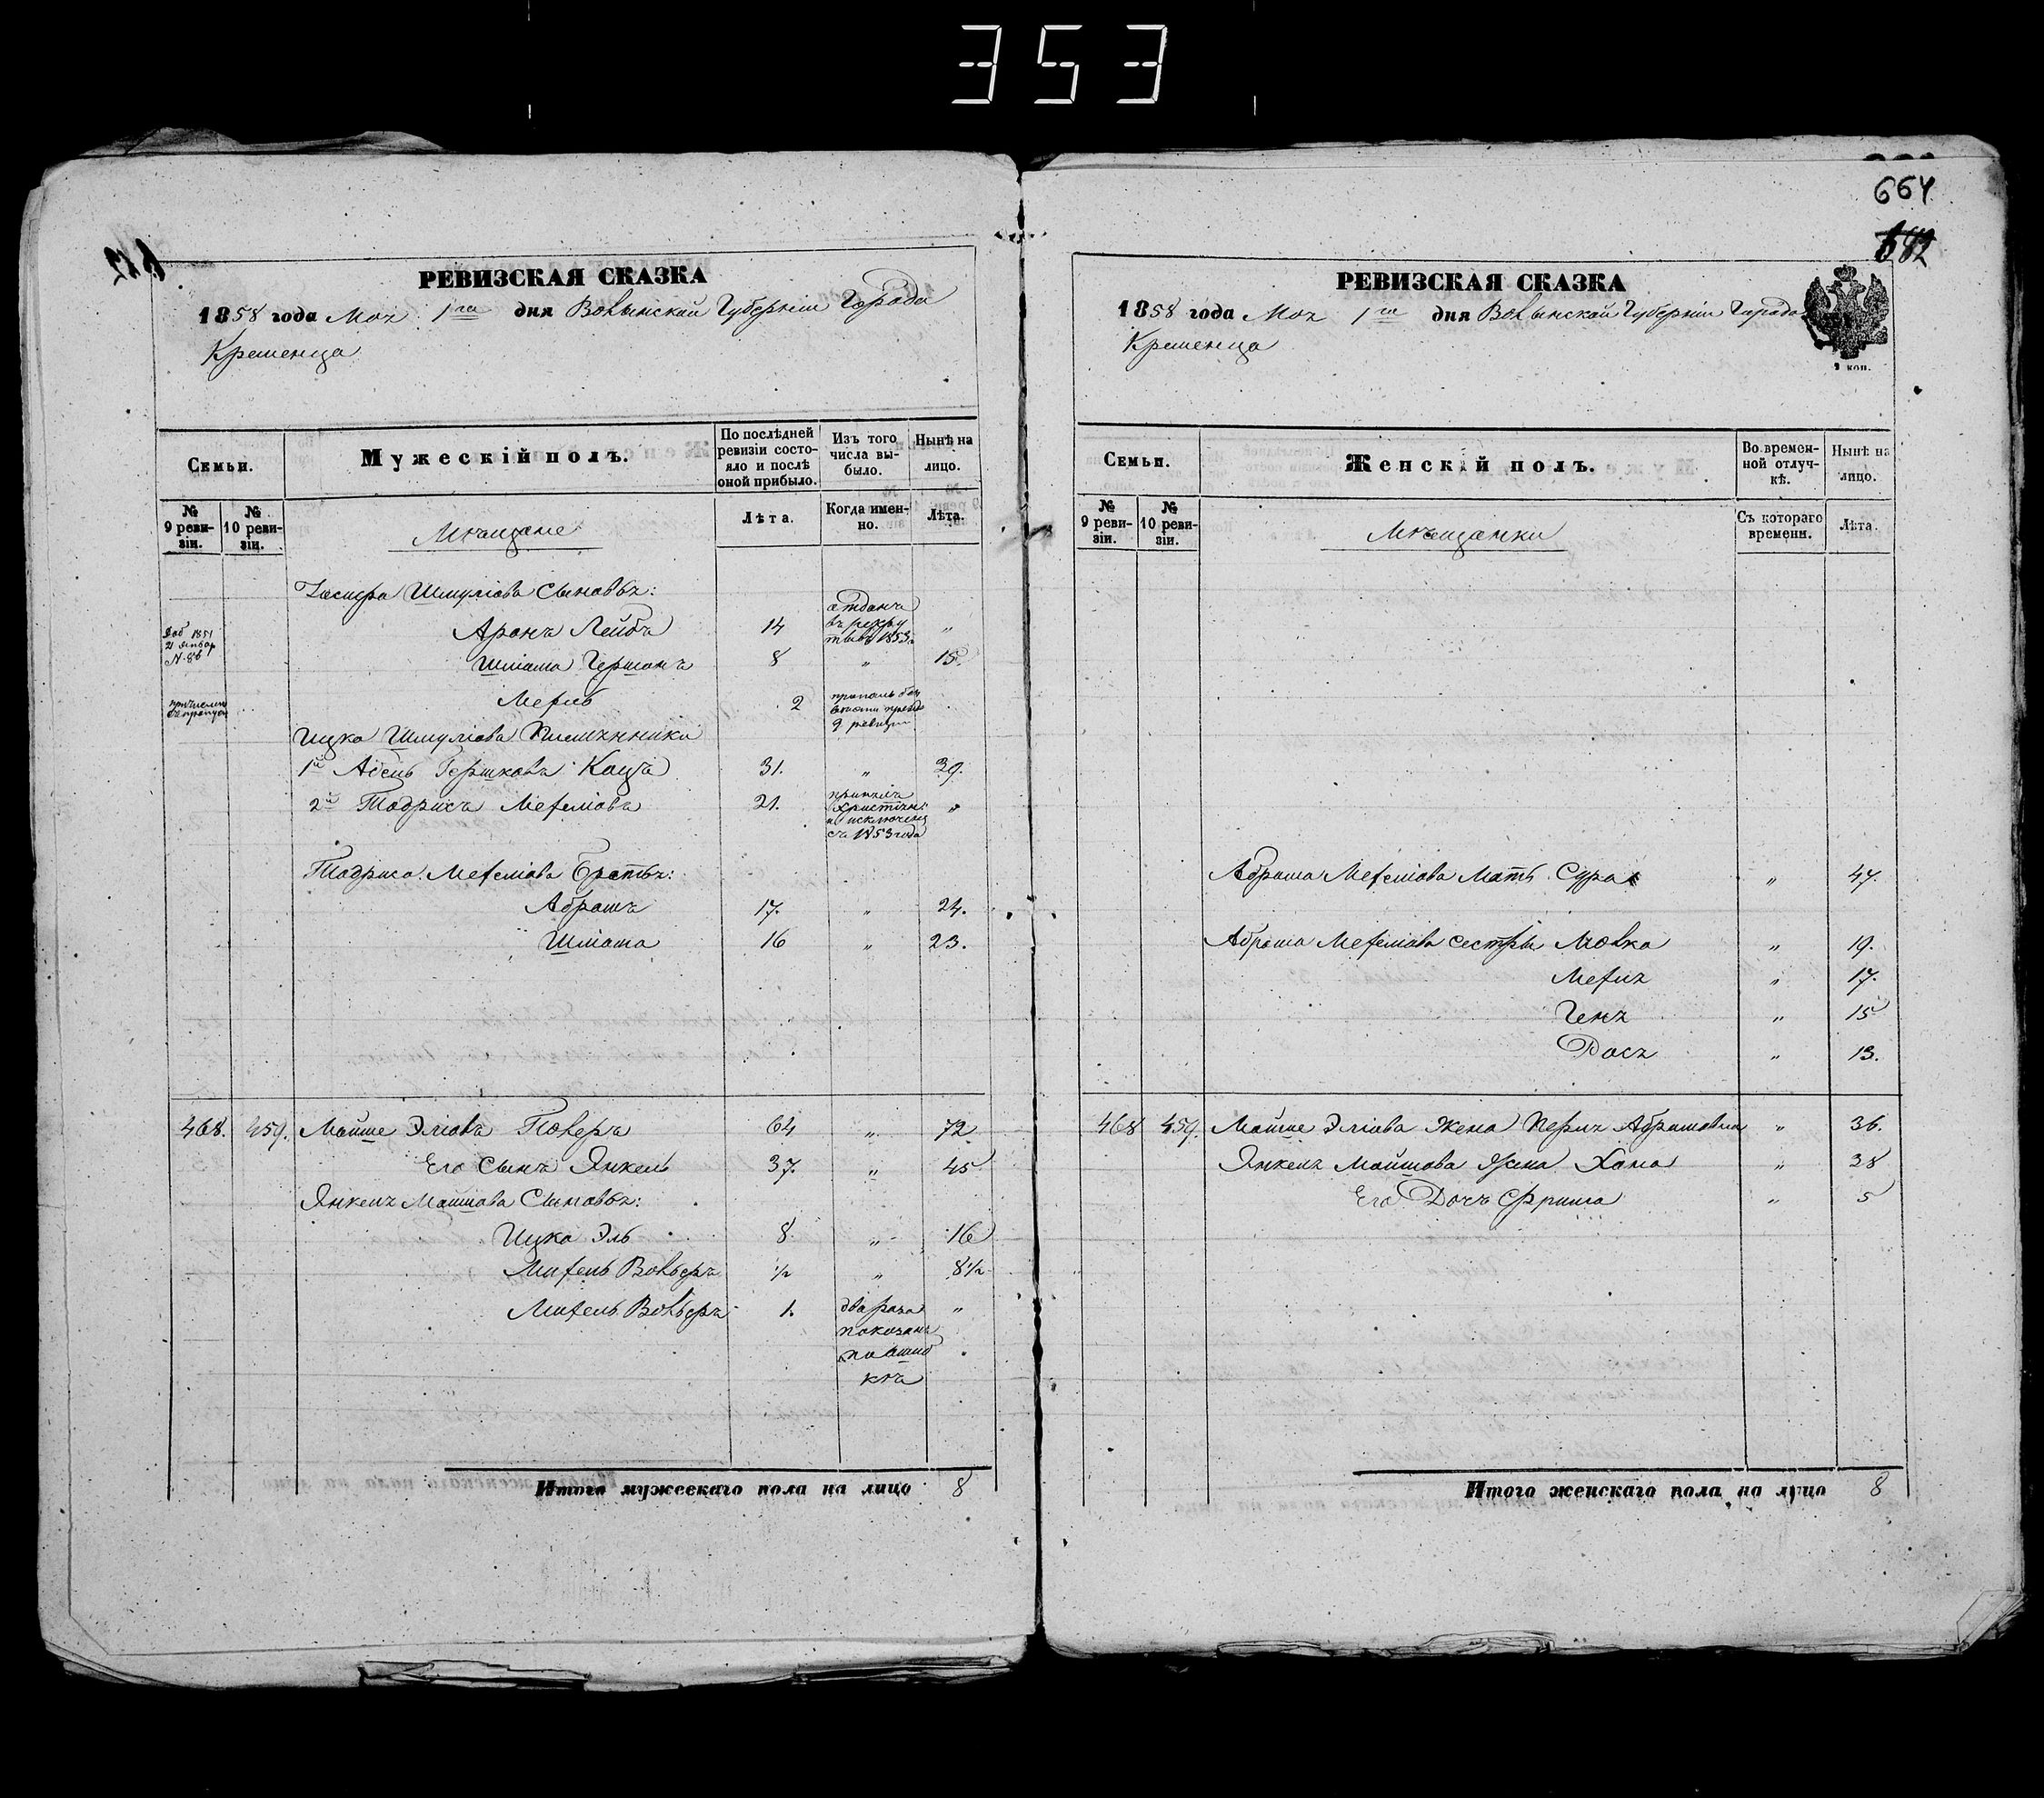 353
664
682
РЕВИЗСКАЯ СКАЗКА
1858 года Мая 1го дня Волынской Губерніи Города
Кременца
Семьи.
Мужескій полъ.
По послѣдней ревизіи состояло и послѣ оной прибыло.
Изъ того числа выбыло.
Нынѣ на лицо.
№ 9 ревизіи.
№ 10 ревизіи.
Мѣщане
Лѣта.
Когда именно.
Лѣта.
Шмуліова Сыновья:
Аронъ Лейба 14 отданъ въ рекруты въ 1853 „
1851 21 Январ № 86
Шліома Гершонъ 8 „ 15.
2
9 ревизіи
Ицка Шмуліова Племянники
1й Гершковъ Кацъ 31. „ 39.
2й Тодрисъ 21. принялъ Христіан и исключенъ съ 1853 года „
Тодриса Братья:
Абрамъ 17. „ 24.
Шліома 16 „ 23.
468. 459. Мойше Эліовъ 64 „ 72.
Его Сынъ Янкель 37. „ 45
Янкеля Мошкова Сыновья:
Ицко Эль 8 „ 16
Вольфъ ½ „ 8½
Вольфъ 1. два раза показанъ по ошибкѣ „
Итого мужескаго пола на лицо 8
РЕВИЗСКАЯ СКАЗКА
1858 года Мая 1го дня Волынской Губерніи Города
Кременца
2 коп.
Семьи.
Женскій полъ.
Во временной отлучкѣ.
Нынѣ на лицо.
№ 9 ревизіи.
№ 10 ревизіи.
Мѣщанки
Съ котораго времени.
Лѣта.
Абрама Мать Сура „ 47.
Абрама сестры „ 19.
„ 17.
Геня „ 15
Дося „ 13.
468 459. Мойше Эліова Жена Перля Абрамовна „ 36.
Янкеля Мошкова Жена Хана „ 38
Его Дочь Фрима „ 5
Итого женскаго пола на лицо 8